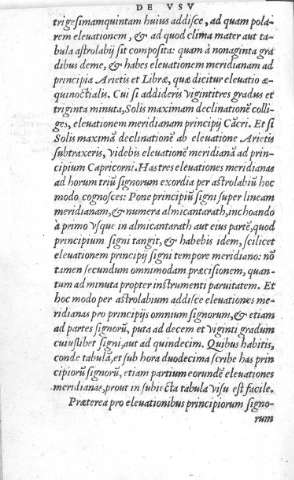 DE VSV
trigesimamquintam huius addisce, ad quam pola-
rem eleuationem, & ad quod clima mater aut ta-
bula astrolabij sit composita: quam à nonaginta gra
dibus deme, & habes eleuationem meridianam ad
principia Arietis et Libræ, quæ dicitur eleuatio æ-
quinoctialis. Cui si addideris vigintitres gradus et
triginta minuta, Solis maximam declinationē colli-
ges, eleuationem meridianam principij Cācri. Et si
Solis maximā declinationē ab eleuatione Arietis
subtraxeris, videbis eleuationē meridianā ad prin-
cipium Capricorni. Has tres eleuationes meridianas
ad horum triū signorum exordia per astrolabiū hoc
modo cognosces: Pone principiū signi super lineam
meridianam, & numera almicantarath, inchoando
à primo vsque in almicantarath aut eius partē, quod
principium signi tangit, & habebis idem, scilicet
eleuationem principij signi tempore meridiano: nō
tamen secundum omnimodam præcisionem, quan-
tum ad minuta propter instrumenti paruitatem. Et
hoc modo per astrolabium addisce eleuationes me-
ridianas pro principijs omnium signorum, & etiam
ad partes signorū, puta ad decem et viginti gradum
cuiuslibet signi, aut ad quindecim. Quibus habitis,
conde tabulā, et sub hora duodecima scribe has prin
cipiorū signorū, etiam partium eorundē eleuationes
meridianas, prout in subiecta tabula visu est facile.
Præterea pro eleuationibus principiorum signo-
rum